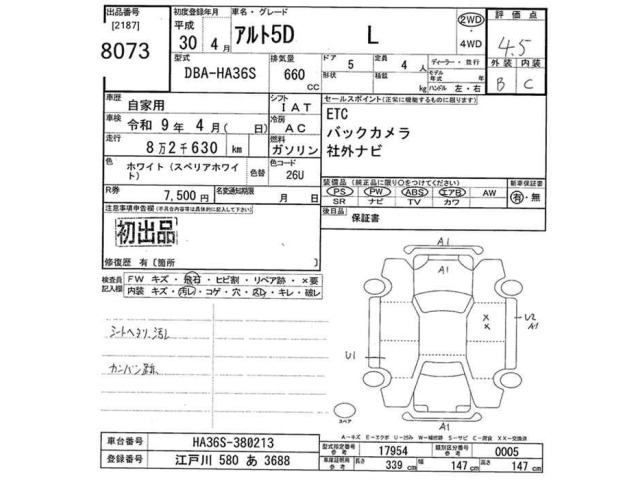 出品番号
[2187]
8073
初度登録年月
平成
30年 4月
車名・グレード
アルト5D L
2WD
4WD
評価点
4.5
外装 内装
B C
型式
DBA-HA36S
排気量
660
CC
ドア 5
形状
定員 4 人
積載 kg
ディーラー・並行
モデル年式 年式
ハンドル 左・右
車歴
自家用
シフト
IAT
車検
令和 9年 4月( 日)
冷房
AC
走行
8万2千630 km
燃料
ガソリン
色
ホワイト(スペリアホワイト)
色替
色コード
26U
R券
7,500円
名変通知期限
月 日
セールスポイント(正常に機能するものに限ります)
ETC
バックカメラ
社外ナビ
装備品(純正品に限り○をつけてください)
PS PW ABS エアB AW
SR ナビ TV カワ
新車保証書
有・無
後日品
保証書
注意事項申告欄(不具合内容等は具体的に記入して下さい)
初出品
修復歴 有〔箇所 〕
検査員記入欄
FW キズ・飛石・ヒビ割・リペア跡・×要
内装 キズ・汚レ・コゲ・穴・凹レ・キレ・破レ
シートヘタリ、汚レ
カンバン跡
A1
A1
U2
A1
×
×
U1
スペア
A1
A-キズ E-エクボ U-凹み W-補修跡 S-サビ C-腐食 XX-交換済
車台番号
HA36S-380213
登録番号
江戸川 580 あ 3688
型式指定番号
参考
17954
類別区分番号
参考
0005
車庫証明用
参考
長さ 339 cm
幅 147 cm
高さ 147 cm